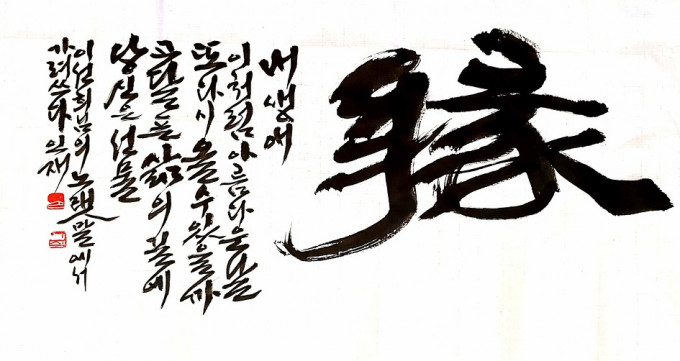 緣
내 생애
이처럼 아름다운 날들
또다시 올 수 있을까
고달픈 삶의 길에
당신은 선물
이선희님의 노랫말에서
가려쓰다